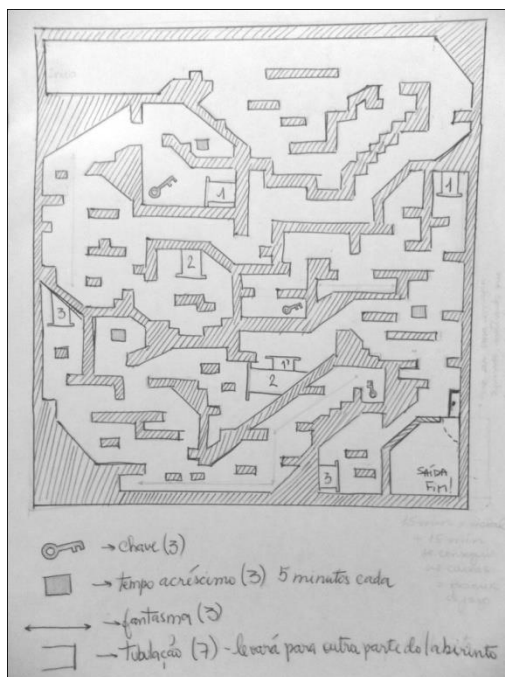 1
1
2
3
1'
2
3
SAÍDA
FIM!
→ chave (3)
→ tempo acréscimo (3) 5 minutos cada
→ fantasma (3)
→ tubulação (7) - levará para outra parte do labirinto